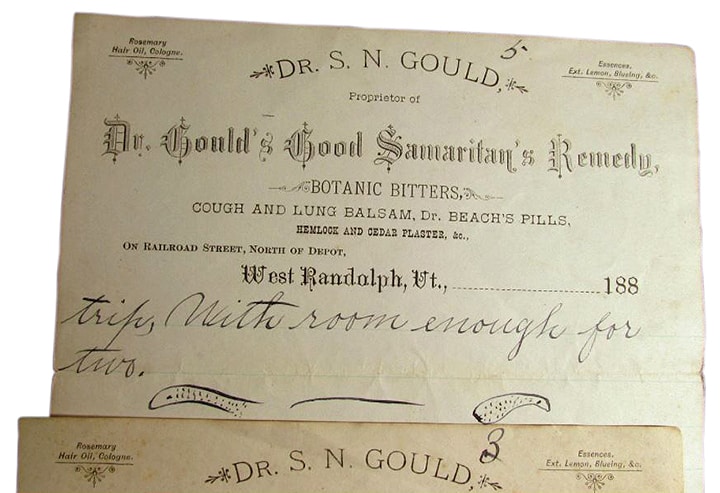 5
Rosemary
Hair Oil, Cologne.
Essences.
Ext. Lemon, Blueing, &c.
DR. S. N. GOULD,
Proprietor of
Dr. Gould's Good Samaritan's Remedy,
BOTANIC BITTERS,
COUGH AND LUNG BALSAM, Dr. BEACH'S PILLS,
HEMLOCK AND CEDAR PLASTER, &c.,
ON RAILROAD STREET, NORTH OF DEPOT,
West Randolph, Vt., 188
trip, With room enough for
two.
3
Rosemary
Hair Oil, Cologne.
Essences.
Ext. Lemon, Blueing, &c.
DR. S. N. GOULD,